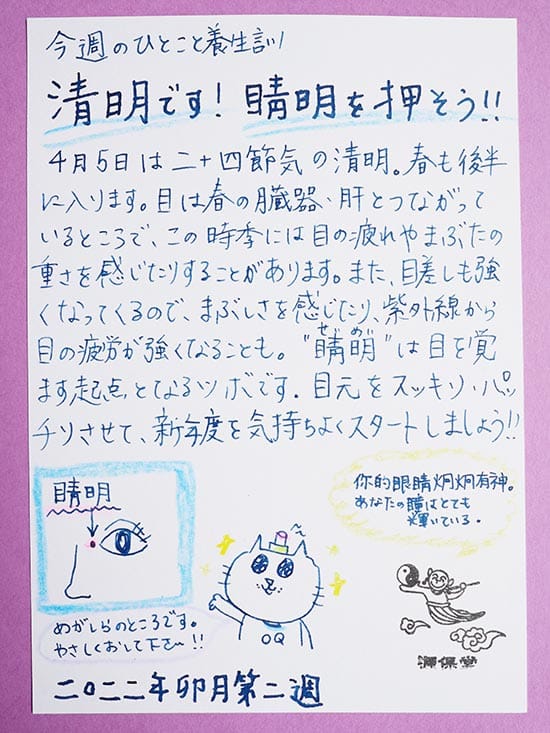 今週のひとこと養生訓
清明です！睛明を押そう!!
4月5日は二十四節気の清明。春も後半
に入ります。目は春の臓器・肝とつながって
いるところで、この時季には目の疲れやまぶたの
重さを感じたりすることがあります。また、日差しも強
くなってくるので、まぶしさを感じたり、紫外線から
目の疲労が強くなることも。"睛明"は目を覚
せいめい
ます起点となるツボです。目元をスッキリ・パッ
チリさせて、新年度を気持ちよくスタートしましょう!!
睛明
你的眼睛炯炯有神。
あなたの瞳はとても
輝いている。
めがしらのところです。
やさしくおして下さい!!
OQ
源保堂
二〇二二年卯月第二週